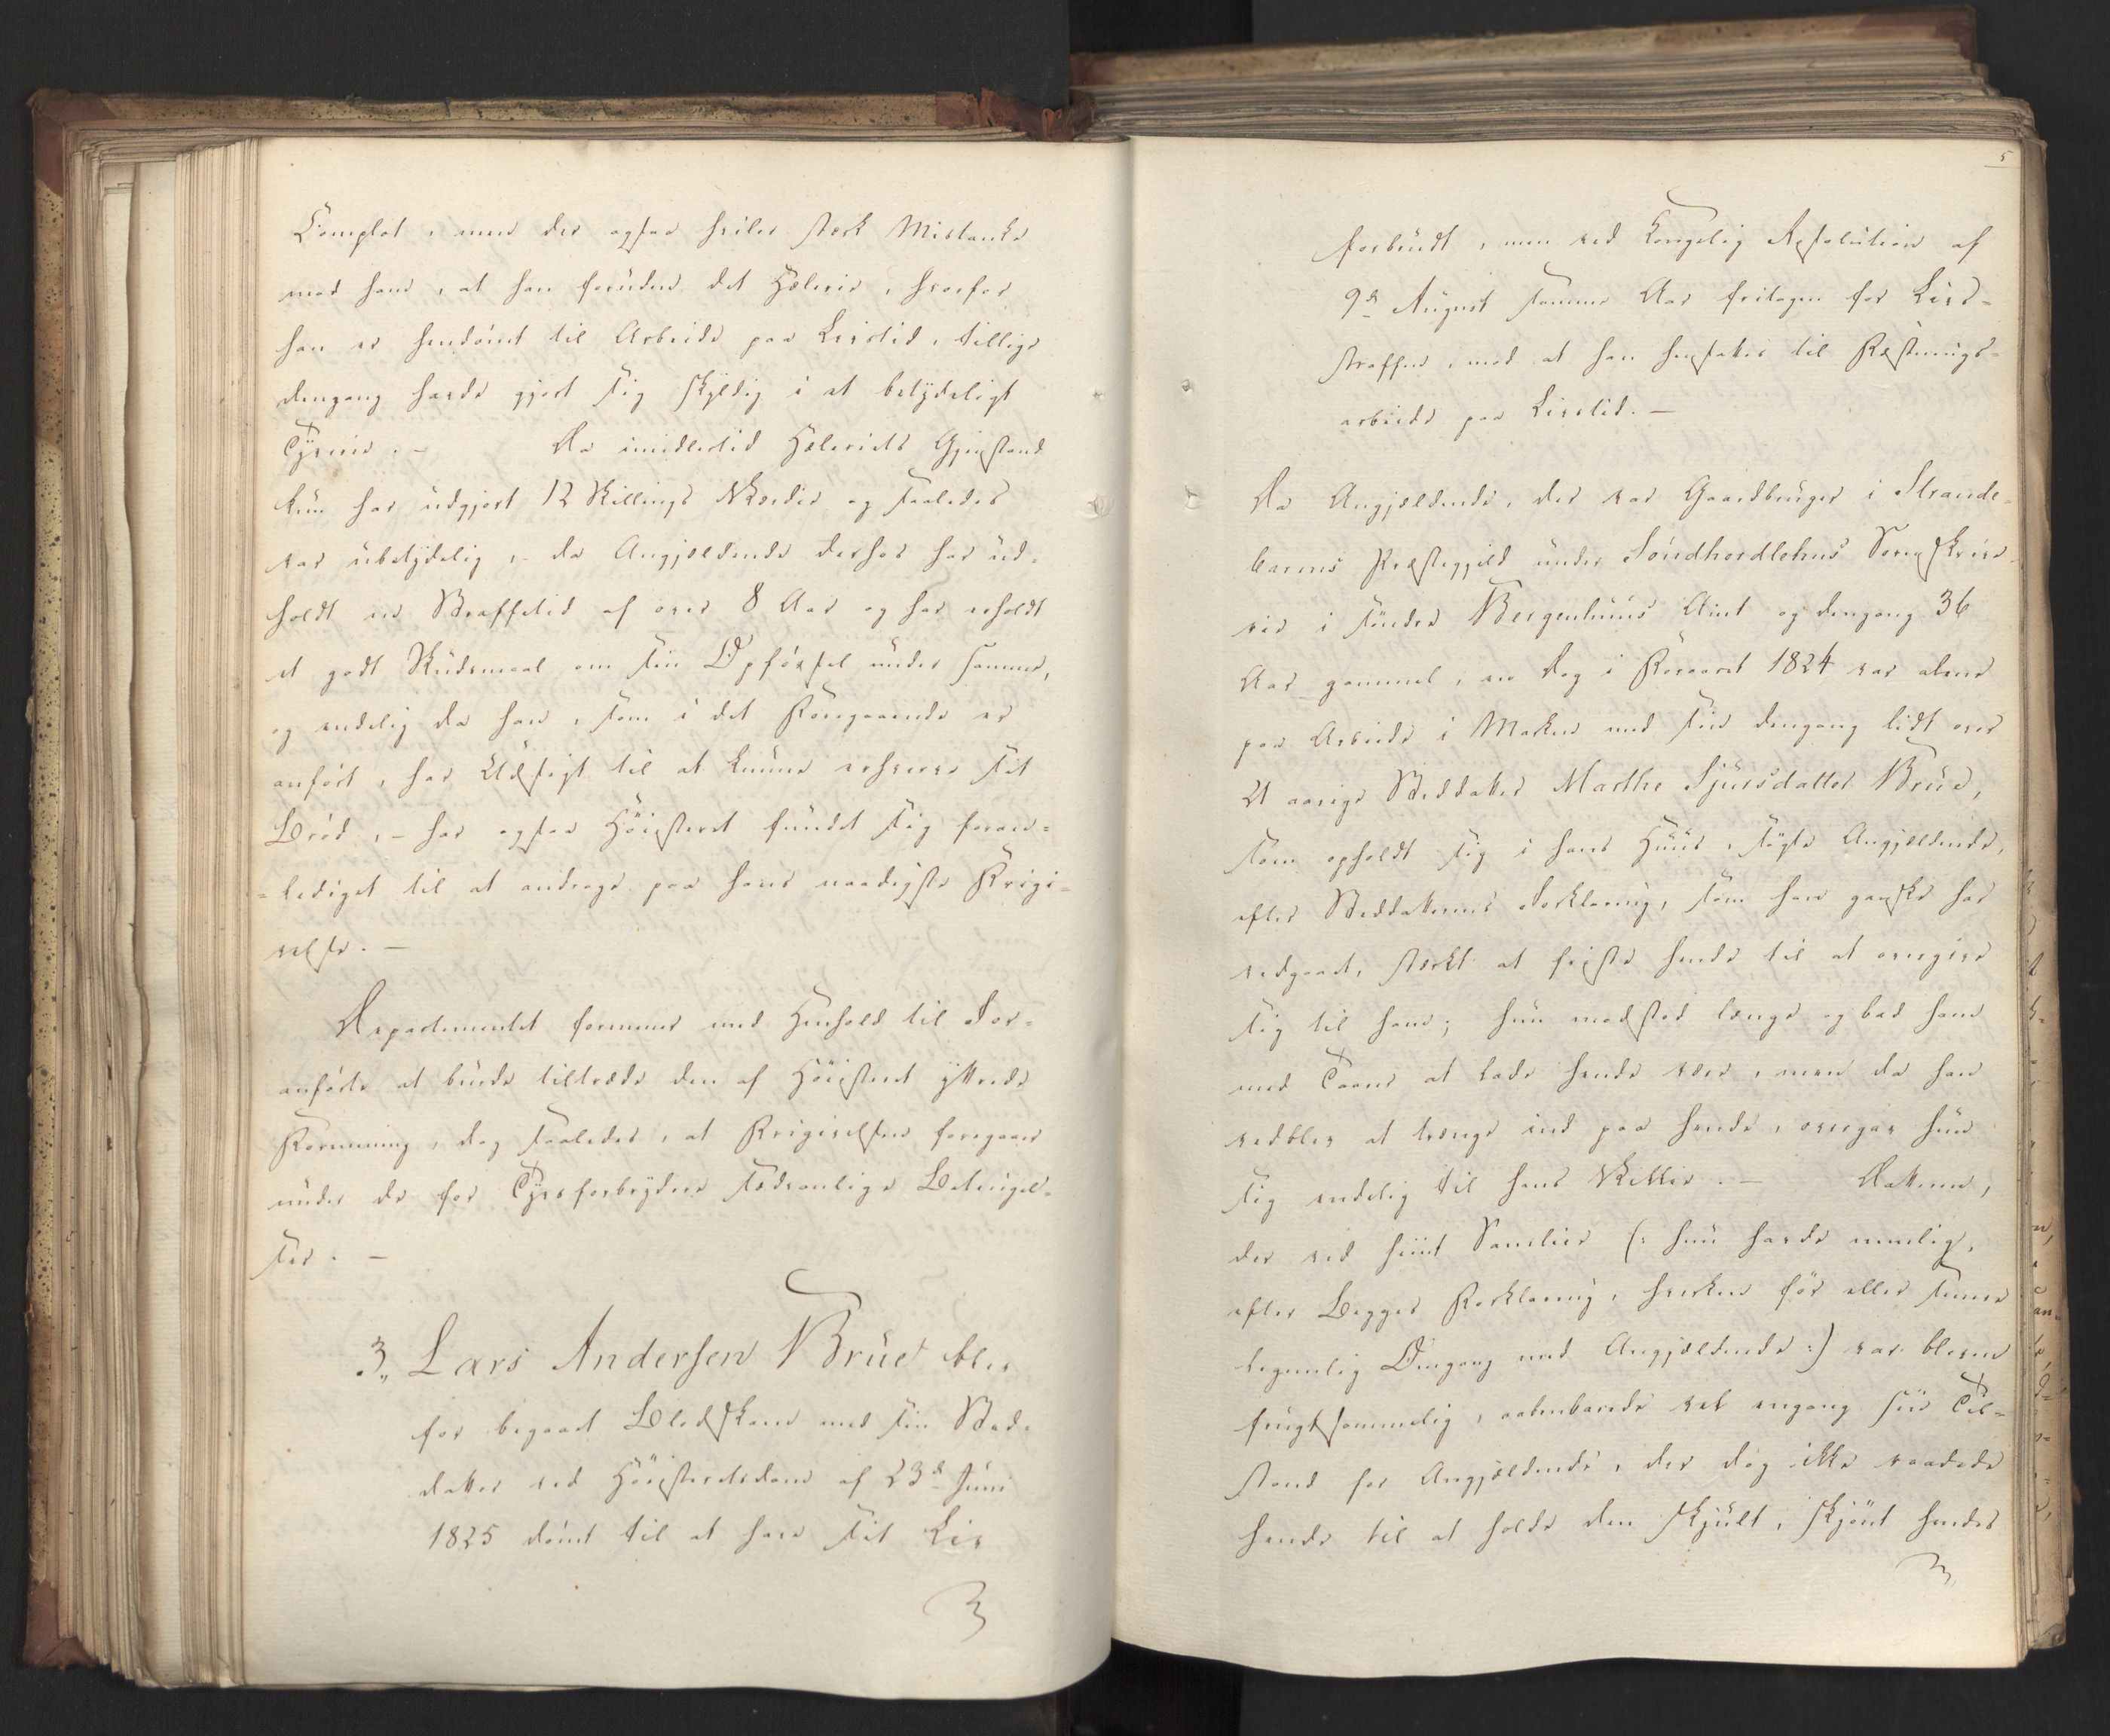 Complot, men der ogsaa hviler stærk Mistanke
mod ham, at han foruden det Hæleri, hvorfor
han er hendømt til Arbeide paa Livstid, tillige
dengang havde gjort sig skyldig i et betydeligt
Tyverie. – Da imidlertid Hæleriets Gjenstand
kun har udgjort 12 Skillings Værdie og saaledes
var ubetydelig, – da Angjældende derhos har ud-
holdt en Straffetid af over 8 Aar og har erholdt
et godt Skudsmaal om sin Opførsel under samme,
og endelig da han, som i det Foregaaende er
anført, har Udsigt til at kunne erhverve sit
Brød, – har ogsaa Høiesteret fundet sig foran=
=lediget til at andrage paa hans naadigste Frigi=
velse. –
Departementet formener med Henhold til For=
anførte at burde tiltræde den af Høiesteret yttrede
Formening, dog saaledes, at Frigivelsen foregaaer
under de for Tyvsforbrydere sædvanlige Betingel-
ser. –
3., Lars Andersen Brüe blev
for begaaet Blodskam med sin Sted-
datter ved Høiesteretsdom af 23d Juni
1825 dømt til at have sit Liv
5
forbrudt, men ved Kongelig Resolution af
9d August samme Aar fritagen for Livs-
straffen, mod at han hensattes til Fæstnings-
arbeide paa Livstid. –
Da Angjældende, der var Gaardbruger i Strande-
barms Præstegjeld under Söndhordlehns Sorenskrive-
rie i söndre Bergenhuus Amt og dengang 36
Aar gammel, en Dag i Foraaret 1824 var alene
paa Arbeide i Marken med sin dengang lidt over
21 aarige Steddatter Marthe Sjursdatter Brüe,
som opholdt sig i hans Huus, søgte Angjældende,
efter Steddatterens Forklaring, som han ganske har
vedgaaet, stærkt at friste hende til at overgive
sig til ham; hun modstod længe og bad ham
med Taarer at lade hende være, men da han
vedblev at trænge ind paa hende, overgav hun
sig endelig til hans Villie. – Datteren,
der ved hiint Samleie (: hun havde nemlig,
efter Begges Forklaring, hverken før eller senere
legemlig Omgang med Angjældende :) var bleven
frugtsommelig, aabenbarede vel engang sin Til=
stand for Angjældende, der dog ikke raadede
hende til at holde den skjult, skjönt hendes